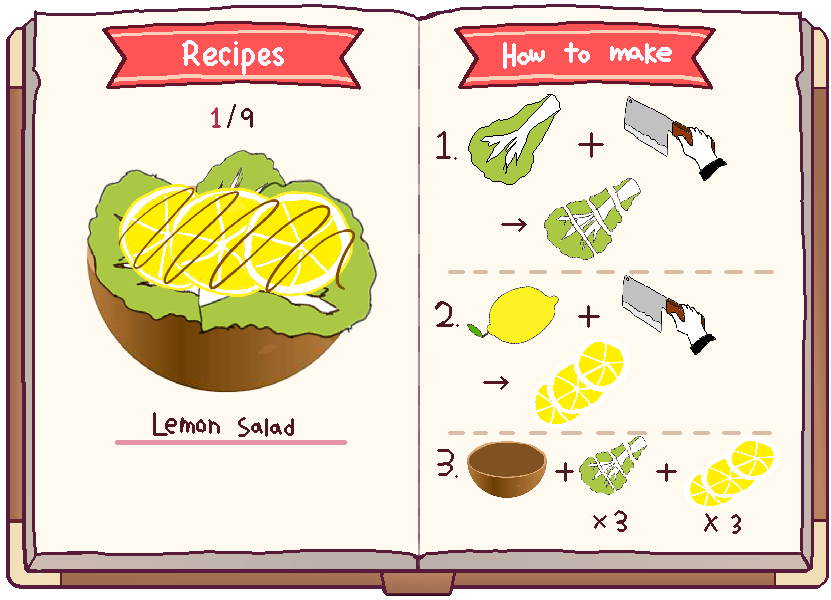 Recipes
1/9
Lemon Salad
How to make
1. +
→
2. +
→
3. + +
×3 X 3